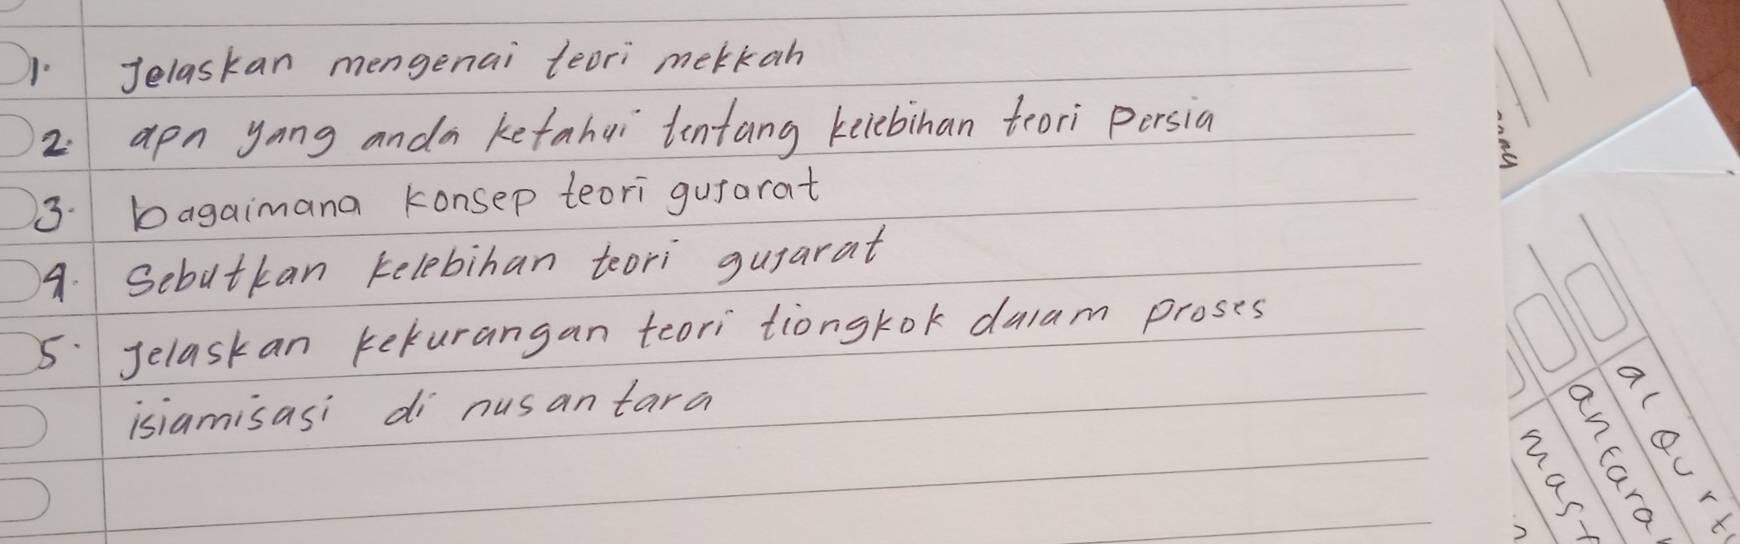 1. Jelaskan mengenai teori mekkah
2. apa yang anda ketahui tentang kelebihan teori Persia
3. bagaimana konsep teori gujarat
4. Sebutkan kelebihan teori gujarat
5. Jelaskan kekurangan teori tiongkok dalam proses
islamisasi di nusantara
al Qur
antara
mas